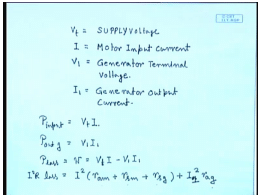 V_t = SUPPLY Voltage
I = Motor Input Current
V_1 = Generator Terminal
Voltage.
I_1 = Generator output
Current.
P_input = V_t I.
P_out g = V_1 I_1
P_loss = W = V_t I - V_1 I_1
I²R loss = I² (r_am + r_sm + r_sg) + I_g² r_ag